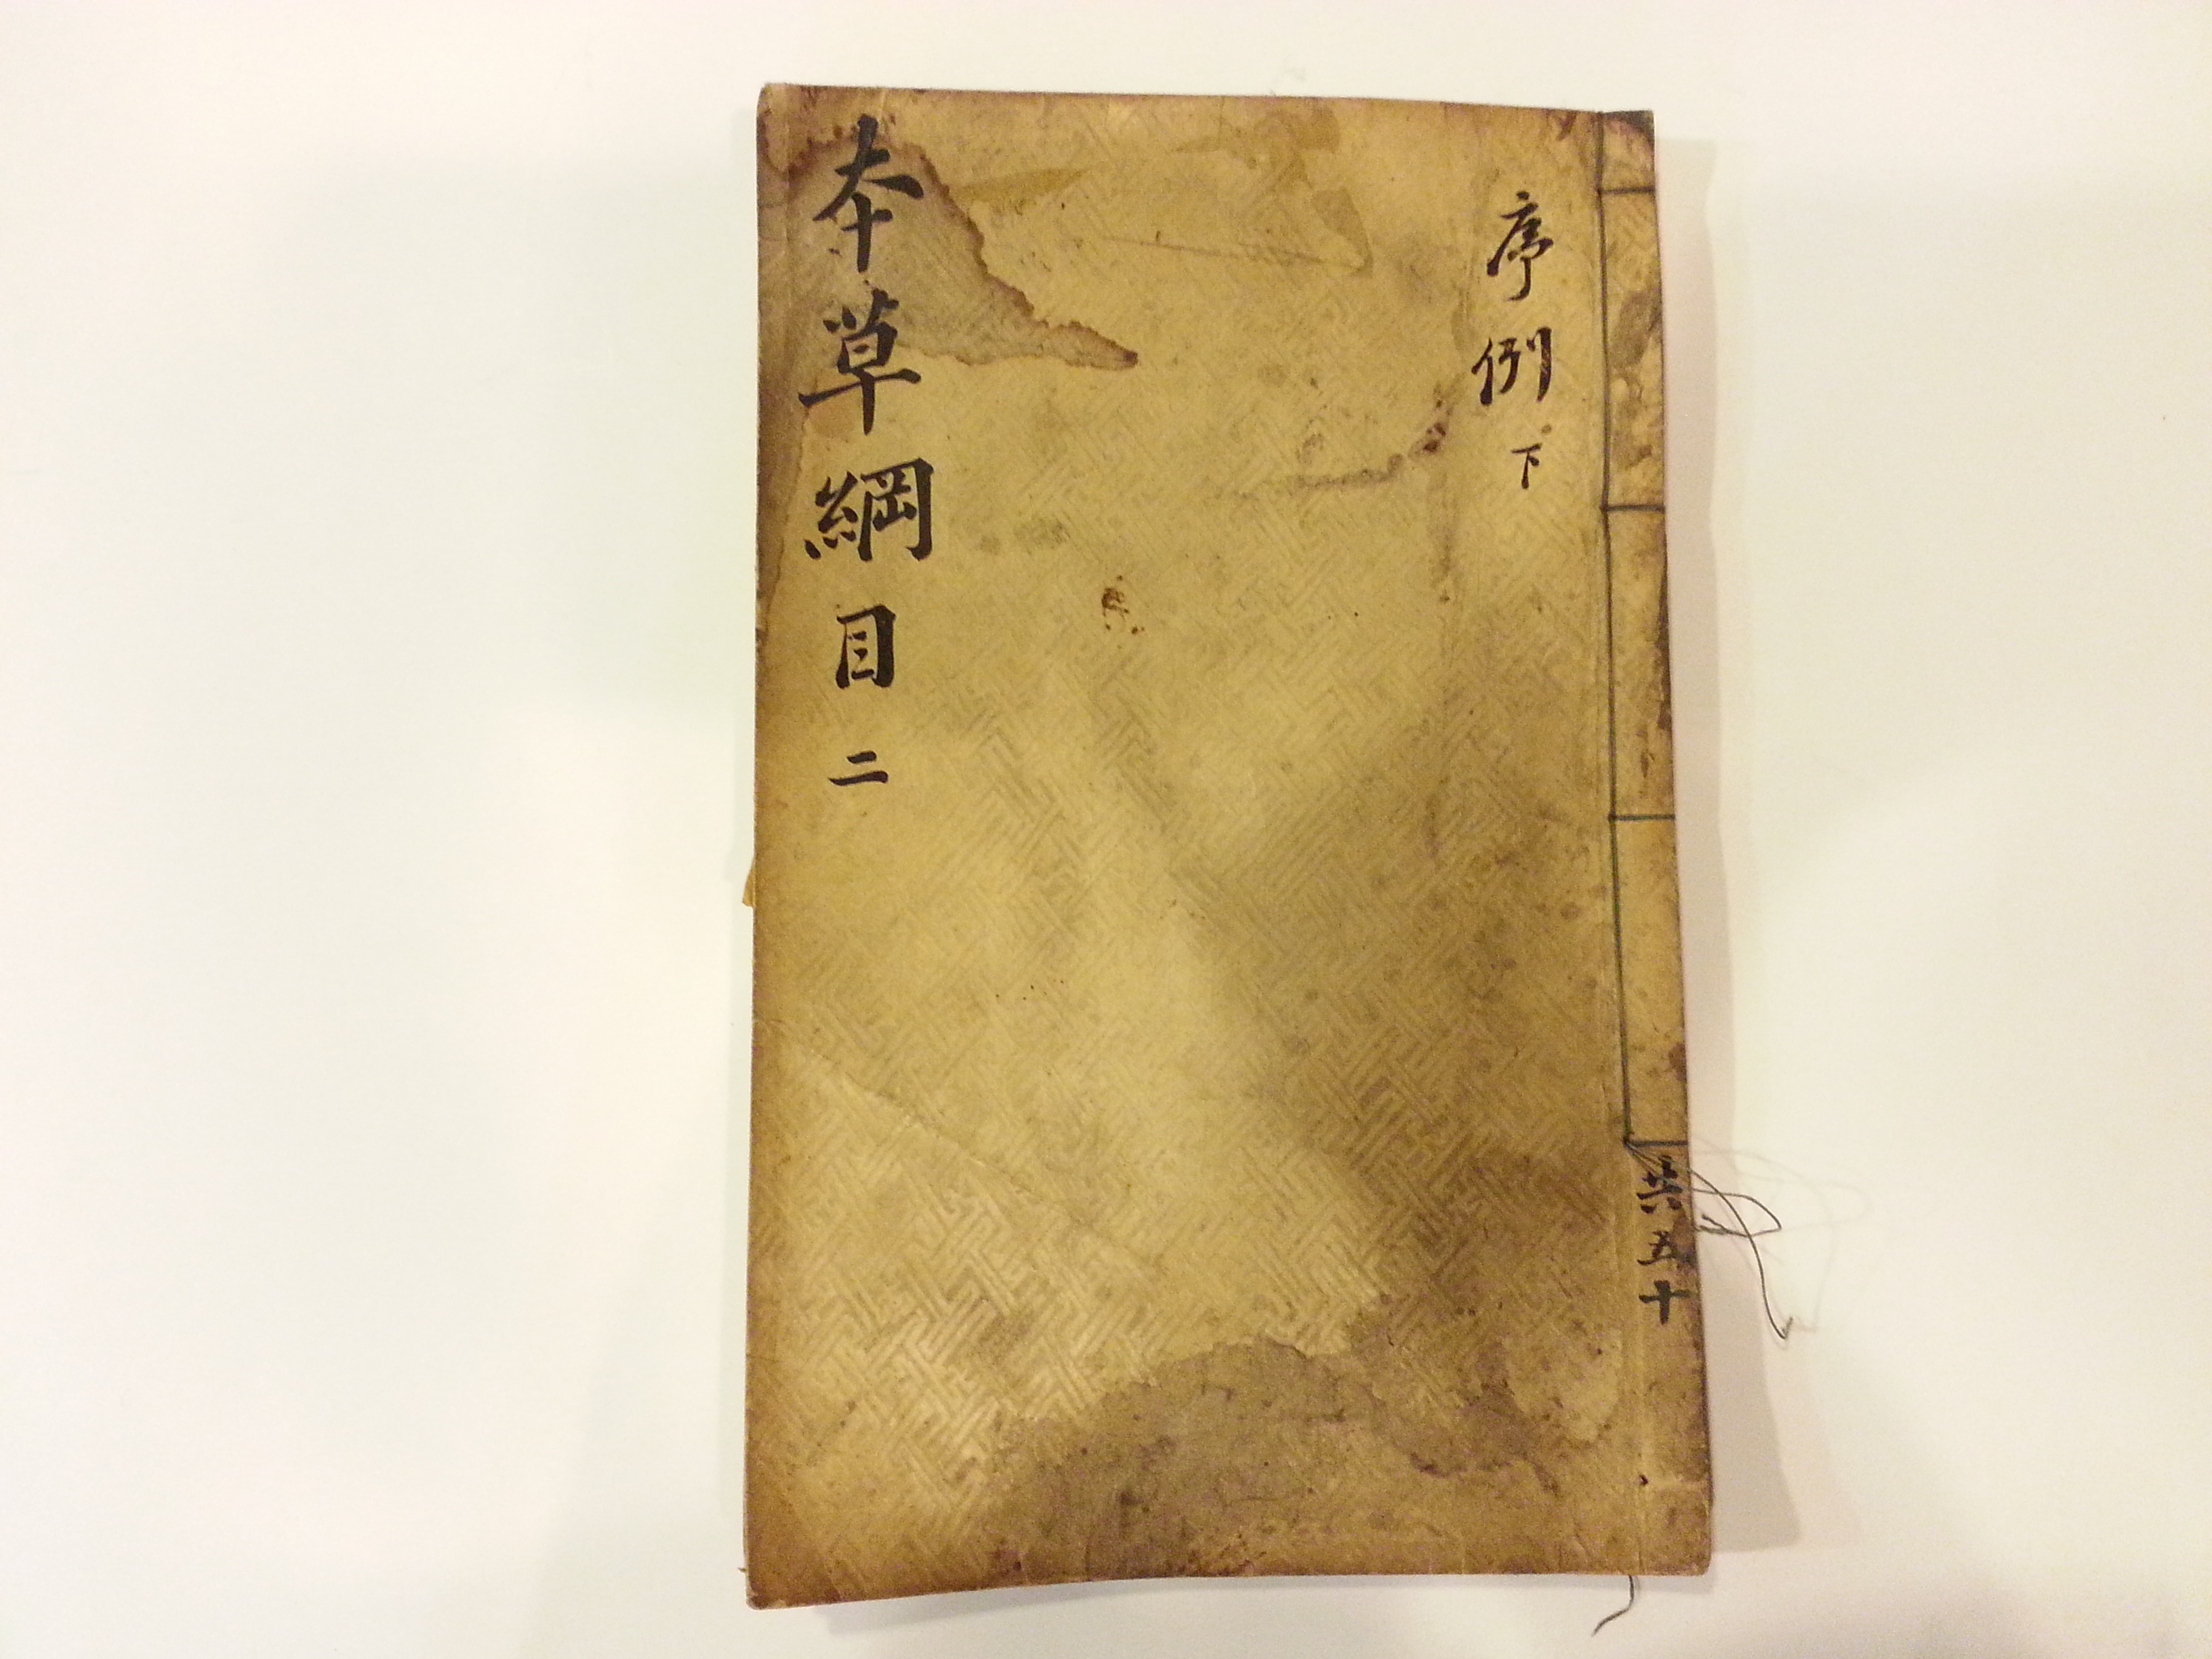 共五十
序例下
夲草綱目二